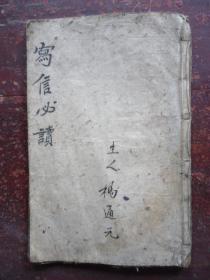 寫信必讀
主人 楊通元